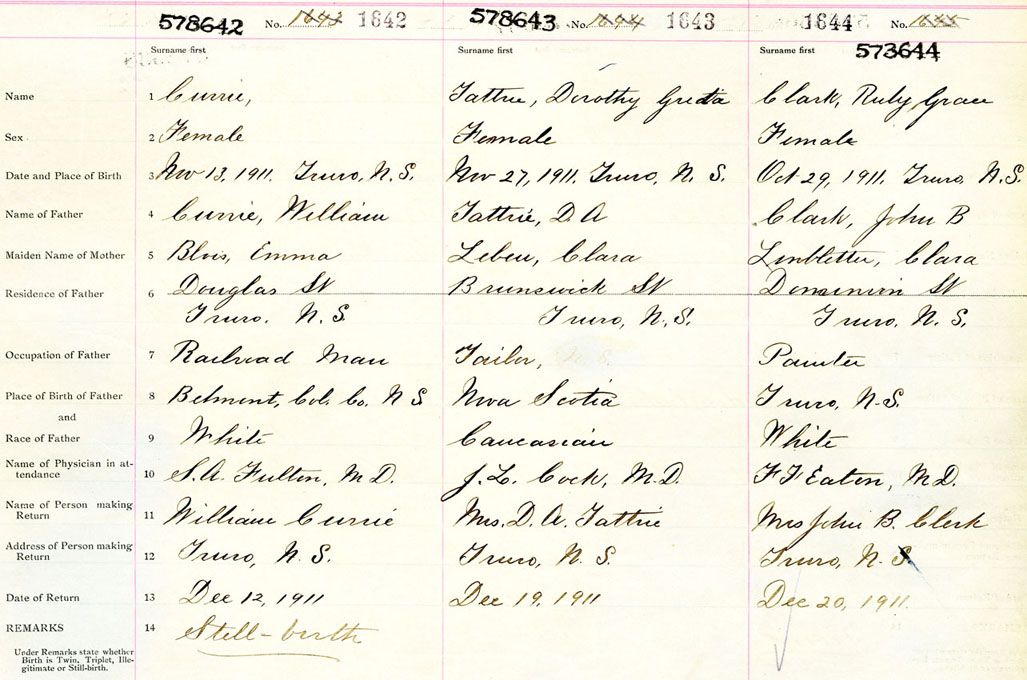 578642 No. 1643 1642 578643 No. 1644 1643 1644 No.
Surname first Surname first Surname first 573644
Name 1 Currie, Tattrie, Dorothy Greta Clark, Ruby Grace
Sex 2 Female Female Female
Date and Place of Birth 3 Nov 13, 1911. Truro, N. S. Nov 27, 1911. Truro, N. S. Oct 29, 1911. Truro, N. S.
Name of Father 4 Currie, William Tattrie, D A Clark, John B
Maiden Name of Mother 5 Blois, Emma Clara Clara
Residence of Father 6 Douglas St Brunswick St Dominion St
Truro. N. S. Truro, N. S. Truro, N. S.
Occupation of Father 7 Railroad Man Tailor, Painter
Place of Birth of Father 8 Belmont, Col. Co. N S Nova Scotia Truro, N.S.
and
Race of Father 9 White Caucasian White
Name of Physician in at-
tendance 10 S. A. Fulton, M D. J. L. Cock, M. D. F F Eaton, M D.
Name of Person making
Return 11 William Currie Mrs. D. A. Tattrie Mrs John B. Clark
Address of Person making
Return 12 Truro, N. S. Truro, N. S. Truro, N. S.
Date of Return 13 Dec 12, 1911 Dec 19, 1911 Dec 20, 1911.
REMARKS 14 Still-birth
Under Remarks state whether
Birth is Twin, Triplet, Ille-
gitimate or Still-birth.